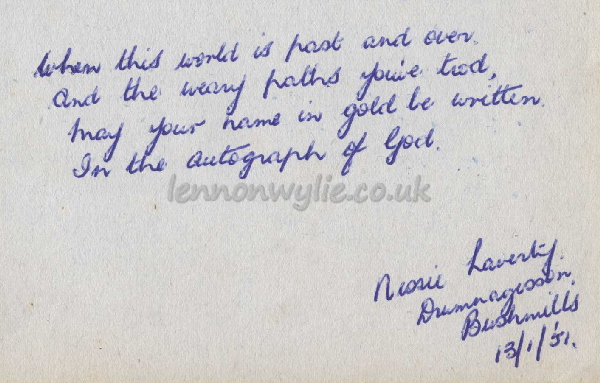 When this world is past and over.
And the weary paths you've trod,
May your name in gold be written
In the autograph of God.
lennonwylie.co.uk
Nessie Laverty.
Drumnagesson
Bushmills
13/1/51.